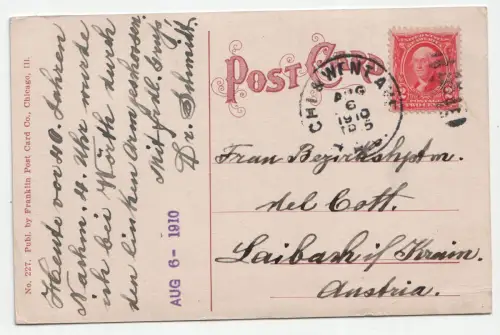 No. 227. Publ. by Franklin Post Card Co., Chicago, Ill.
Heute vor 40 Jahren
Nachm. 4 Uhr wurde
ich bei Wörth durch
den linken Arm geschossen
Mit frdl. Gruß
Dr. Schmidt
AUG 6- 1910
POST CARD
CHI. & WENT
AUG
6
1910
Frau Bezirkshptm.
del Cott.
Laibach i/ Krain.
Austria.